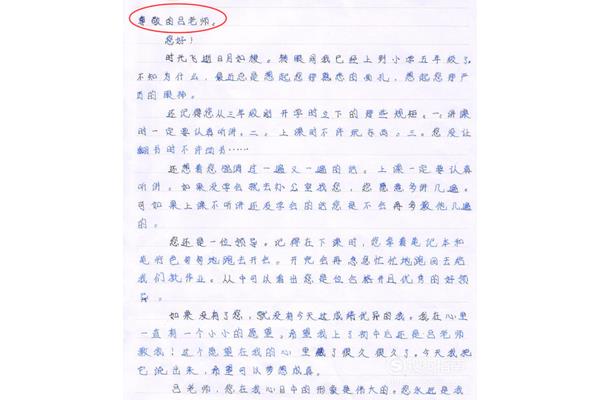 尊敬的吕老师。
您好!
时光飞逝日月如梭。转眼间我已经上到小学五年级了。
不知为什么,最近总是想起您得熟悉的面孔,想起您得严
肃的眼神。
还记得您从三年级刚开学时立下的那些规矩。一:讲课
时一定要认真听讲。二。上课时不许玩东西。三。您没让
翻书时不许翻书……
还想着您强调过一遍又一遍的话。上课一定要认真
听讲。如果没学会就去办公室找您,您愿意多讲几遍。
可如果上课不听讲还没学会的话您是不会再多教他几遍
的。
您还是一位领导。记得在下课时,您拿着笔记本和
笔行色匆匆地跑去开会。开完会再急急忙忙地跑回去给
我们批作业。从中可以看出您是位合格并且优秀的好领
导。
如果没有了您,就没有今天这成绩优异的我。我在心里
一直有一个小小的愿望。希望我上了初中后还是吕老师
教我!这个愿望在我的心里藏了很久很久了。今天我把
它说出来,希望可以梦想成真。
吕老师,您在我心目中的形象是伟大的。您永远是我